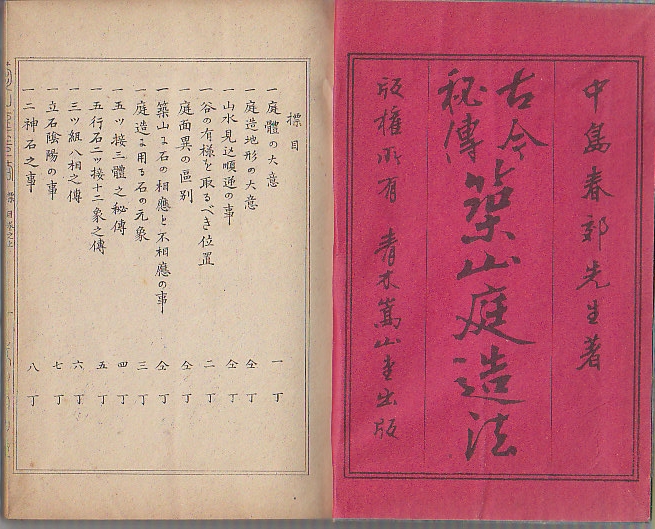 中島春郊先生著
古今
秘傳
築山庭造法
版權所有 青木嵩山堂出版
標目
一庭體の大意 一丁
一庭造地形の大意 仝丁
一山水見込順逆の事 仝丁
一谷の有様を取るべき位置 二丁
一庭面異の區別 仝丁
一築山に石の相應と不相應の事 仝丁
一庭造に用る石の元象 三丁
一五ッ接三體之秘傳 四丁
一五行石二ッ接十二象之傳 五丁
一三ッ組八相之傳 六丁
一立石陰陽の事 七丁
一二神石之事 八丁